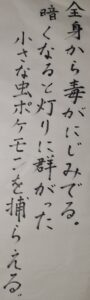 全身から毒がにじみでる。
暗くなると灯りに群がった
小さな虫ポケモンを捕らえる。